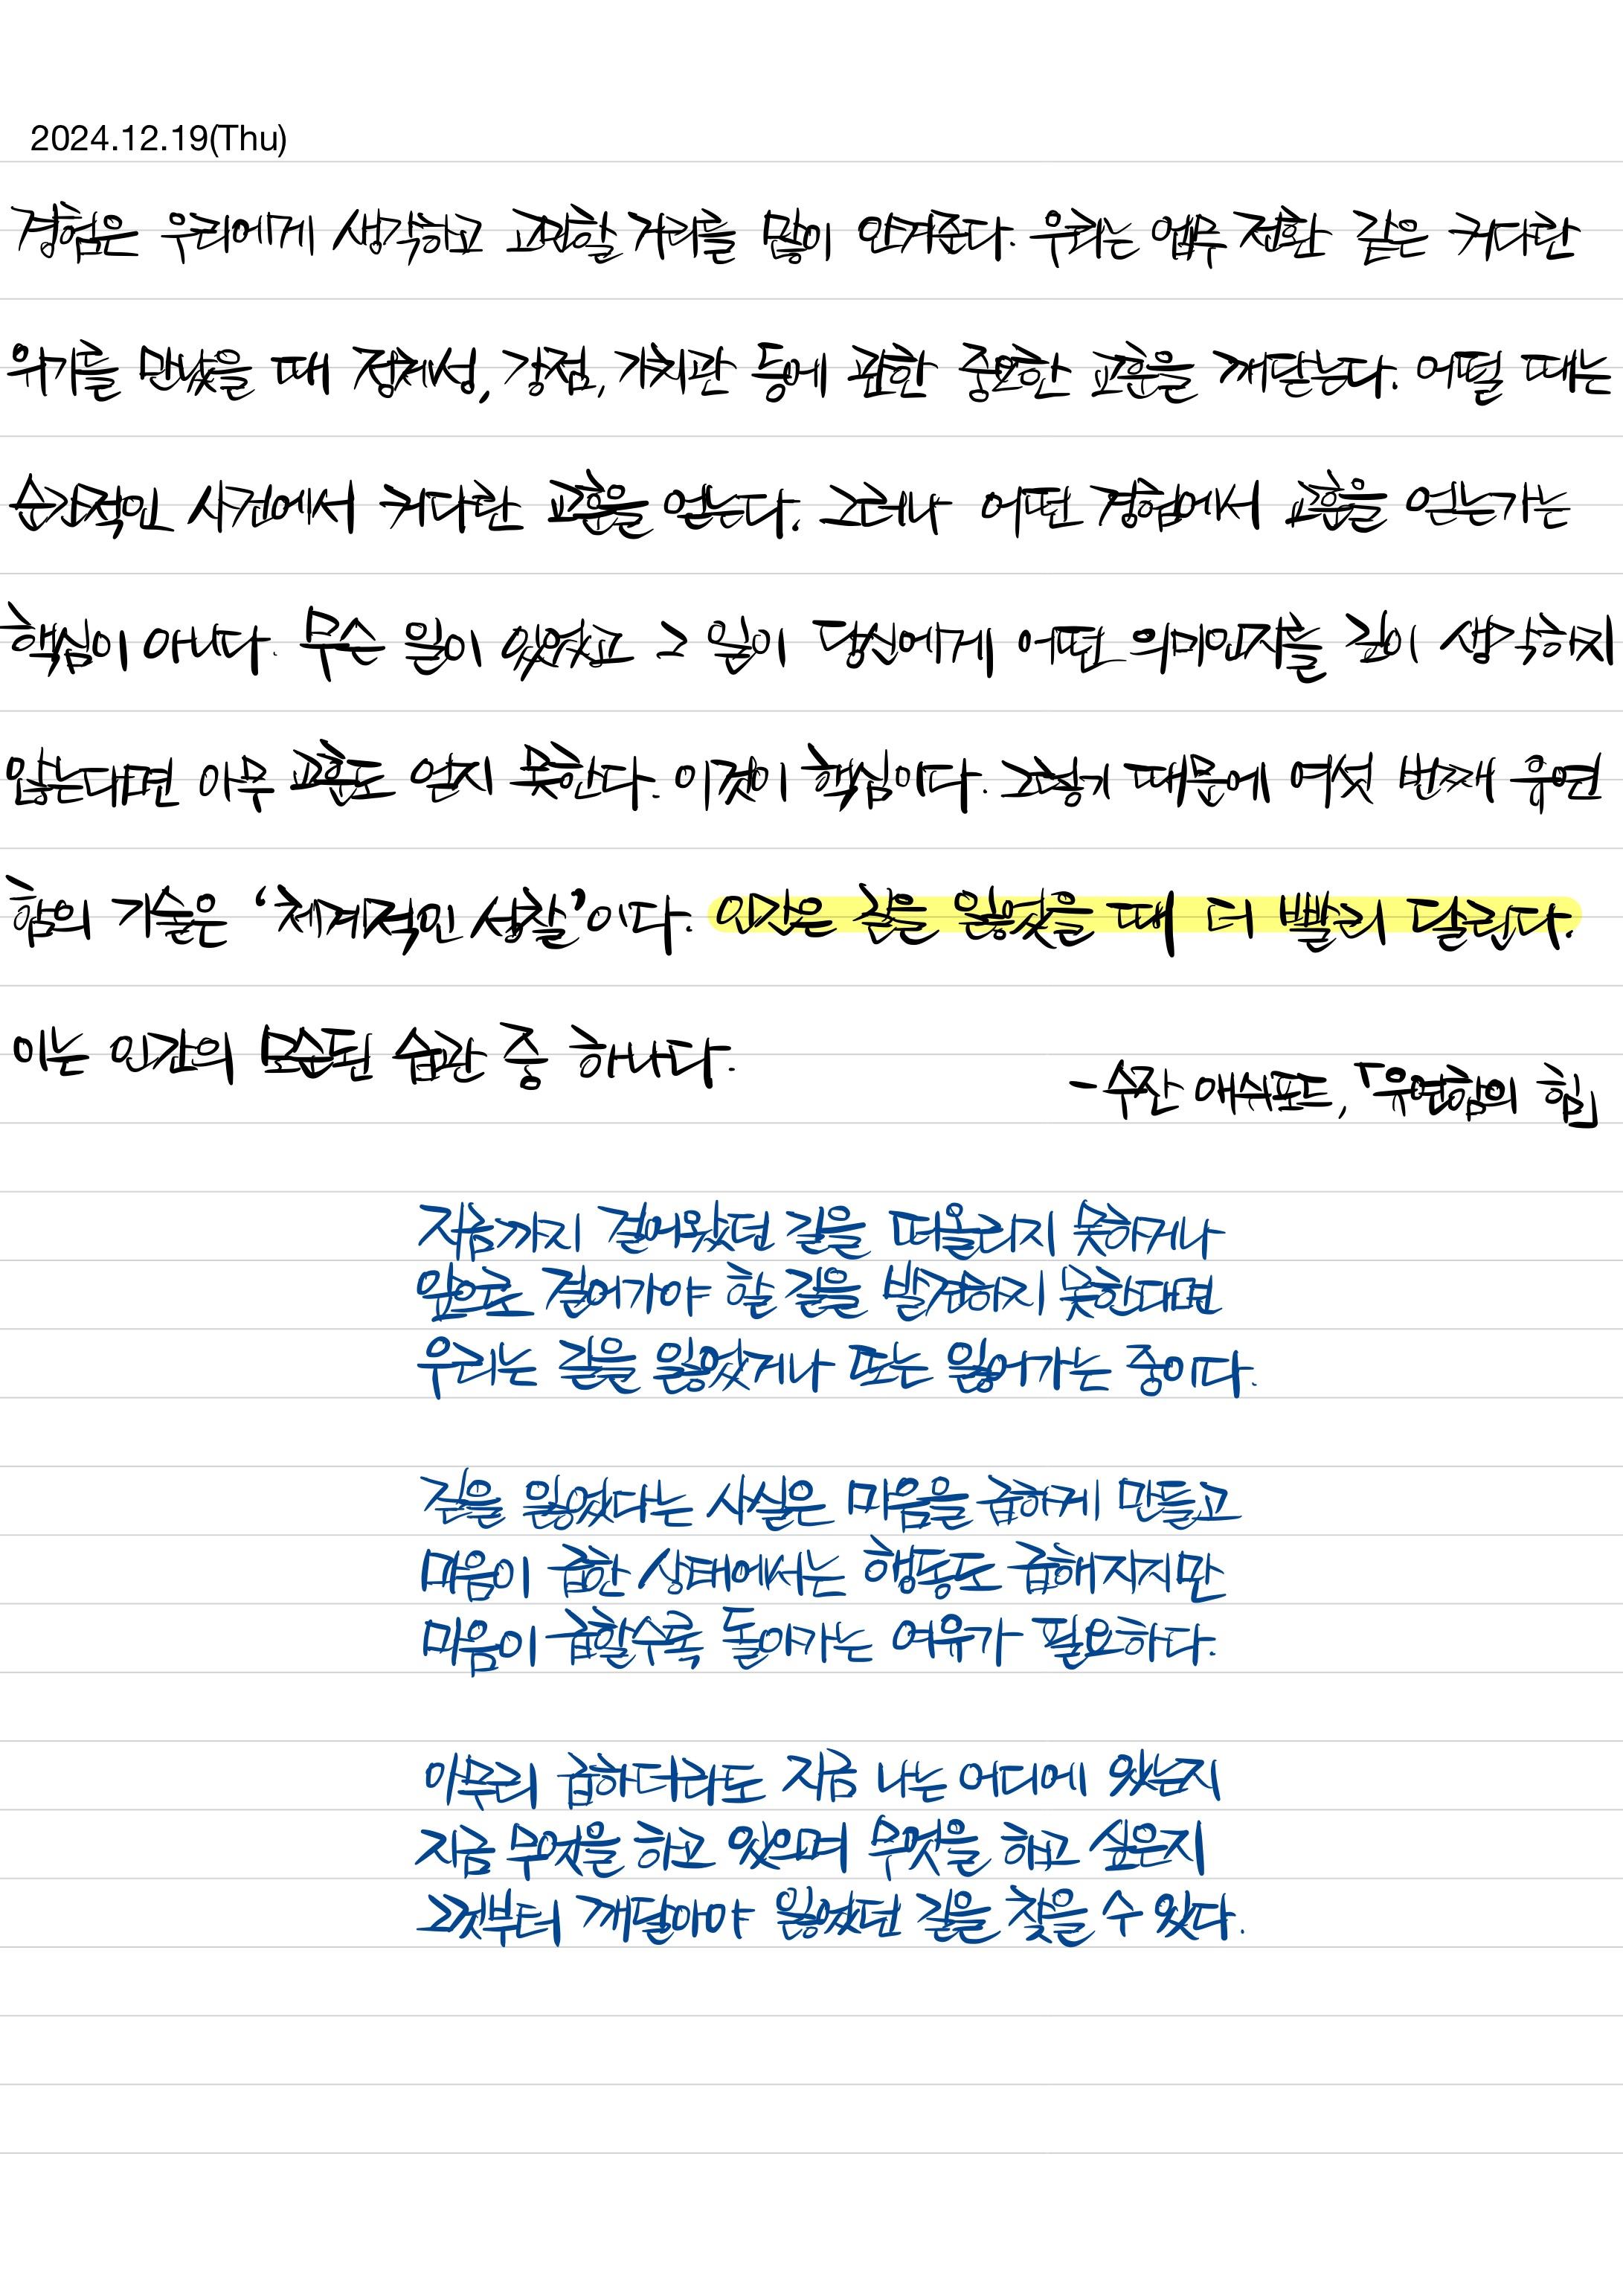 2024.12.19(Thu)
경험은 우리에게 생각하고 고민할 거리를 많이 안겨준다. 우리는 업무 전환 같은 커다란
위기를 만났을 때 정체성, 강점, 가치관 등에 관한 중요한 교훈을 깨닫는다. 어떨 때는
순간적인 사건에서 커다란 교훈을 얻는다. 그러나 어떤 경험에서 교훈을 얻는가는
핵심이 아니다. 무슨 일이 있었고 그 일이 당신에게 어떤 의미인지를 깊이 생각하지
않는다면 아무 교훈도 얻지 못한다. 이것이 핵심이다. 그렇기 때문에 여섯 번째 유연
함의 기술은 ‘체계적인 성찰’이다. 인간은 길을 잃었을 때 더 빨리 달린다.
이는 인간의 모순된 습관 중 하나다.
- 수잔 애쉬포드, 「유연함의 힘」
지금까지 걸어왔던 길을 떠올리지 못하거나
앞으로 걸어가야 할 길을 발견하지 못한다면
우리는 길을 잃었거나 또는 잃어가는 중이다.
길을 잃었다는 사실은 마음을 급하게 만들고
마음이 급한 상태에서는 행동도 급해지지만
마음이 급할수록 돌아가는 여유가 필요하다.
아무리 급하더라도 지금 나는 어디에 있는지
지금 무엇을 하고 있으며 무엇을 하고 싶은지
그것부터 깨달아야 잃었던 길을 찾을 수 있다.